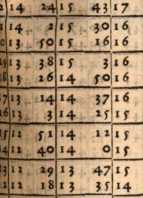 14 24 15 43 17
14 2 15 30 16
13 50 15 16 16
13 38 15 3 16
13 26 14 50 16
13 14 14 37 16
13 3 14 25 15
11 51 14 12 15
12 40 14 0 15
11 29 13 47 15
12 18 13 35 14